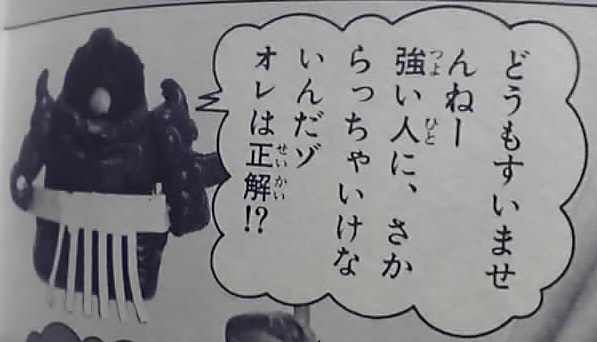 どうもすいませ
んねー
強い人に、さか
らっちゃいけな
いんだゾ
オレは正解!?